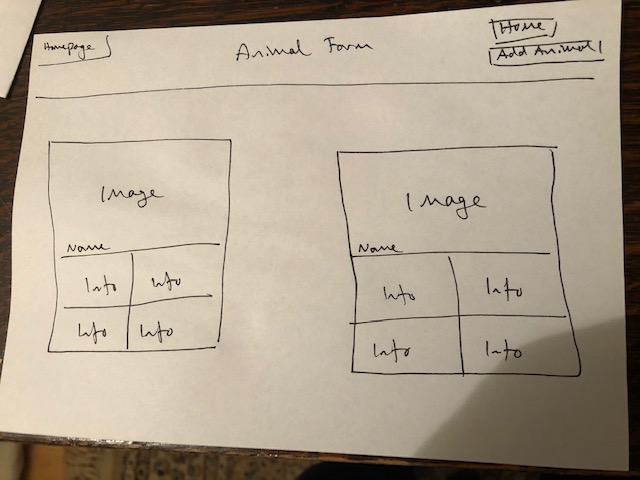 Homepage
Animal Farm
Home
Add Animal
Image
Name
Info Info
Info Info
Image
Name
Info Info
Info Info